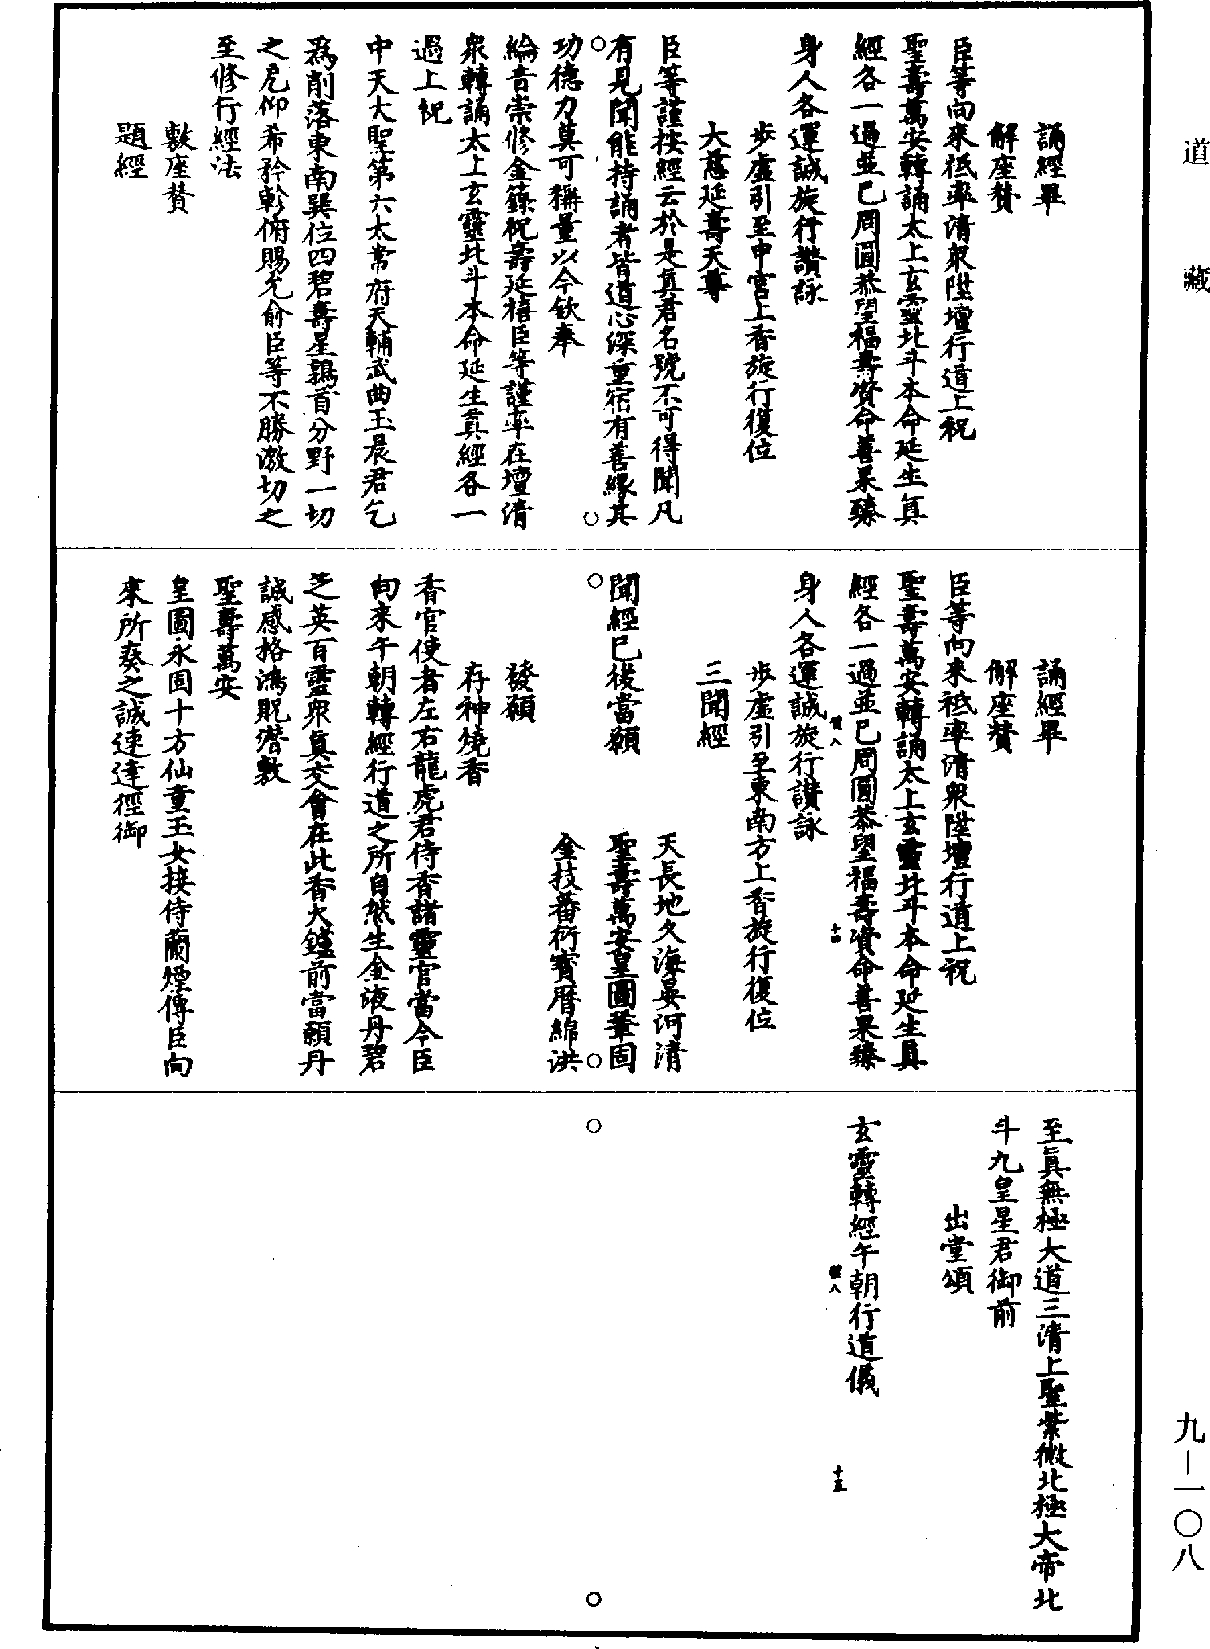 道藏
誦經畢
解座贊
臣等向來祗率清衆陞壇行道上祝
聖壽萬安轉誦太上玄靈北斗本命延生真
經各一過並已周圓恭望福壽資命善果臻
身人各運誠旋行讚詠
步虛引至中宮上香旋行復位
大慈延壽天尊
臣等謹按經云於是真君名號不可得聞凡
有見聞能持誦者皆道心深重宿有善緣其
功德力莫可稱量以今欽奉
綸音崇修金籙祝壽延禧臣等謹率在壇清
衆轉誦太上玄靈北斗本命延生真經各一
過上祝
中天大聖第六太常府天輔武曲玉晨君乞
爲削落東南巽位四碧壽星鶉首分野一切
之厄仰希矜軫俯賜允俞臣等不勝激切之
至修行經法
敷座贊
題經
誦經畢
解座贊
臣等向來祗率清衆陞壇行道上祝
聖壽萬安轉誦太上玄靈北斗本命延生真
經各一過並已周圓恭望福壽資命善果臻
身人各運誠旋行讚詠
步虛引至東南方上香旋行復位
三聞經
天長地久海晏河清
聞經已後當願 聖壽萬安皇圖鞏固
金枝蕃衍寶曆綿洪
發願
存神燒香
香官使者左右龍虎君侍香諸靈官當令臣
向來午朝轉經行道之所自然生金液丹碧
芝英百靈衆真交會在此香火鑪前當願丹
誠感格鴻貺潛敷
聖壽萬安
皇圖永固十方仙童玉女接侍蘭煙傳臣向
來所奏之誠速達徑御
至真無極大道三清上聖紫微北極大帝北
斗九皇星君御前
出堂頌
玄靈轉經午朝行道儀
十四
十五
九－一〇八